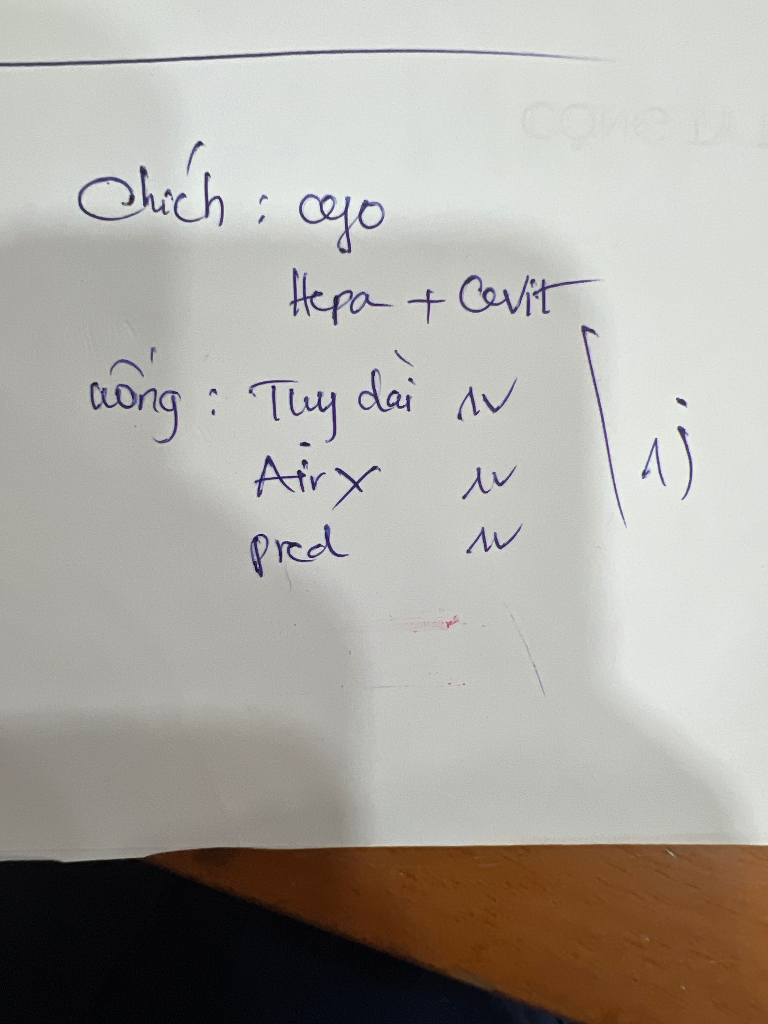 Chích : oxo
Hepa + Cevit
uống : Tuy dài 1V
Air X 1V
pred 1V
1j